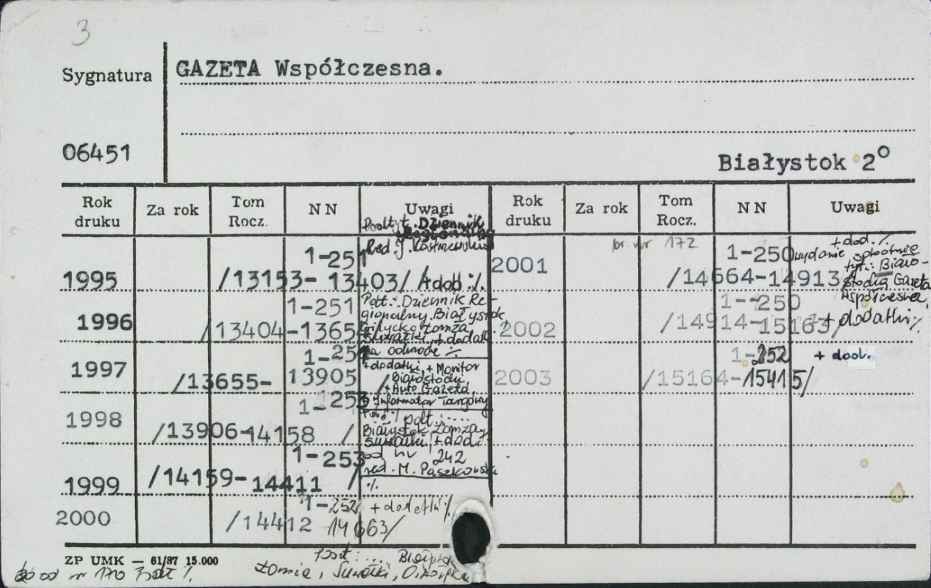 3
Sygnatura GAZETA Współczesna.
06451
Białystok 2°
Rok druku Za rok Tom Rocz. NN Uwagi Rok druku Za rok Tom Rocz. NN Uwagi
Podt. Dziennik
Red. J.
1995 /13153-13403/ 1-251 + dod. %
Pdt.: Dziennik Re-
gionalny. Białystok
1996 /13404- 1-251
+ dodat.
1997 /13655-13905 /
+ dodatki, + Monitor
Białostocki,
+ Auto Gazeta,
+ Informator Targowy
1998 /13906-14158 / 1-253
podt.: ....
Białystok Łomża
Suwałki + dod.
od nr 242
red. M.
1999 /14159-14411 / 1-253
%
2000 /14412 14663/ 1-252 + dodatki %
br nr 172
2001 /14664-14913/ 1-250
+ dod. %
tyt.: Biało-
stocka Gazeta
Współczesna,
2002 /14914-15163/ 1-250 + dodatki %
2003 /15164-15415/ 1-252 + dod.
ZP UMK — 61/87 15.000
od nr 170
podt: ...
Łomża, Suwałki,